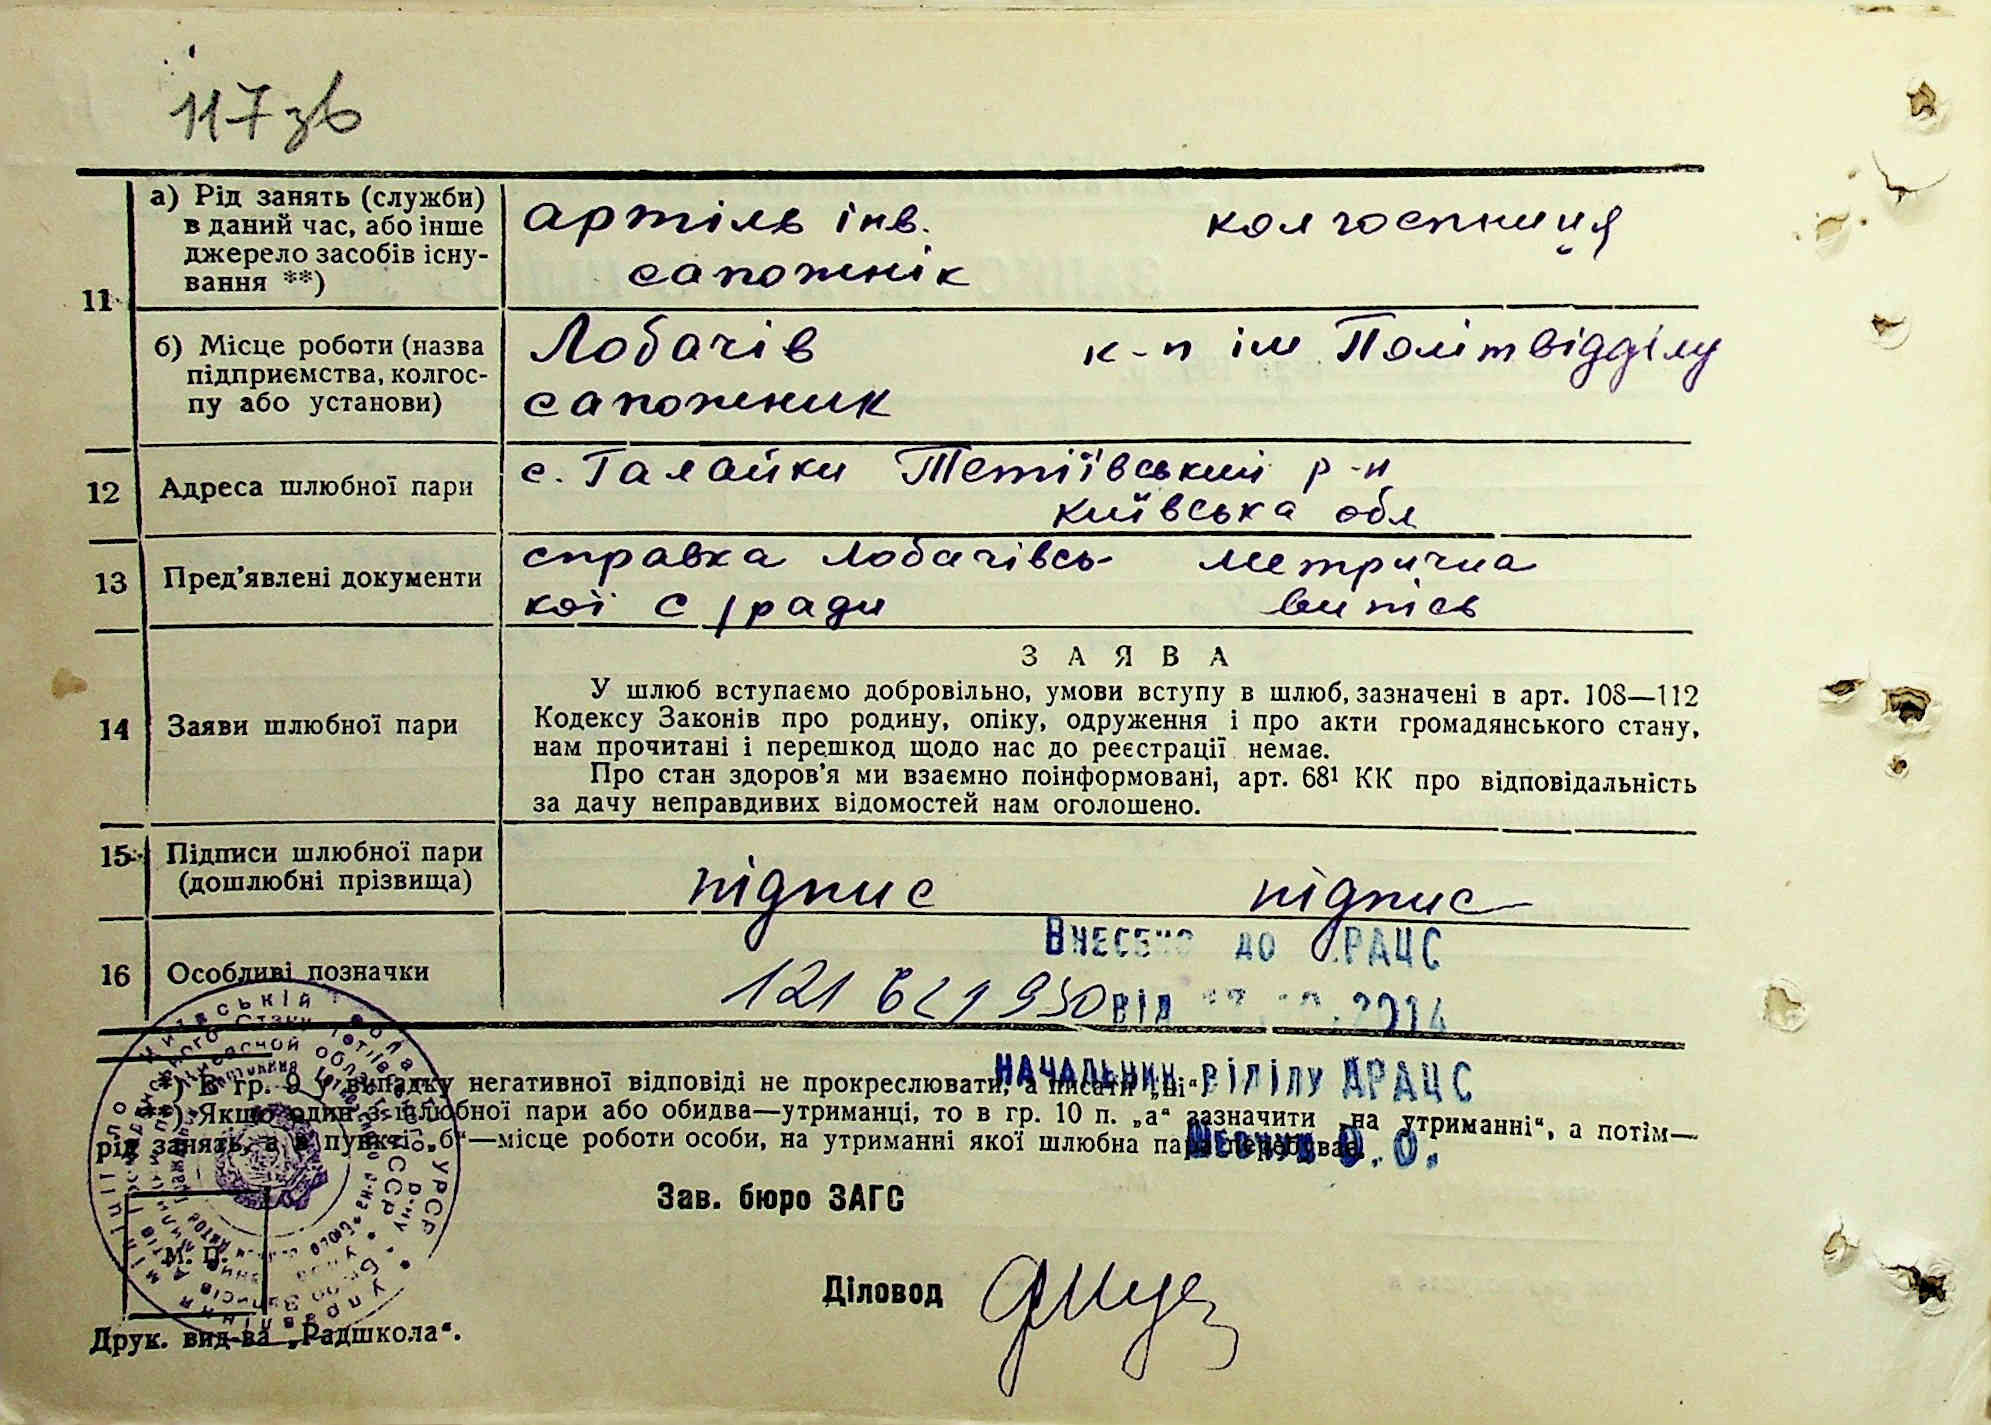 117 зв
а) Рід занять (служби)
в даний час, або інше
джерело засобів існу-
вання **)
артіль інв. колгоспниця
сапожнік
11
б) Місце роботи (назва
підприємства, колгос-
пу або установи)
Лобачів к-п ім Політвідділу
сапожник
12 Адреса шлюбної пари
с. Галайки Тетіївський р-н
Київська обл
13 Пред’явлені документи
справка Лобачівсь- метрична
кої с/ради випісь
14 Заяви шлюбної пари
ЗАЯВА
У шлюб вступаємо добровільно, умови вступу в шлюб, зазначені в арт. 108—112
Кодексу Законів про родину, опіку, одруження і про акти громадянського стану,
нам прочитані і перешкод щодо нас до реєстрації немає.
Про стан здоров’я ми взаємно поінформовані, арт. 68¹ КК про відповідальність
за дачу неправдивих відомостей нам оголошено.
15 Підписи шлюбної пари
(дошлюбні прізвища)
підпис підпис
16 Особливі позначки
Внесено до ДРАЦС
від 2014
Начальник відділу ДРАЦС
О. О.
*) В гр. 9 у випадку негативної відповіді не прокреслювати, а писати „ні“.
**) Якщо один з шлюбної пари або обидва—утриманці, то в гр. 10 п. „а“ зазначити „на утриманні“, а потім—
рід занять, а в пункті „б“—місце роботи особи, на утриманні якої шлюбна пара перебуває.
Зав. бюро ЗАГС
М. П.
Діловод
Друк. вид-ва „Радшкола“.